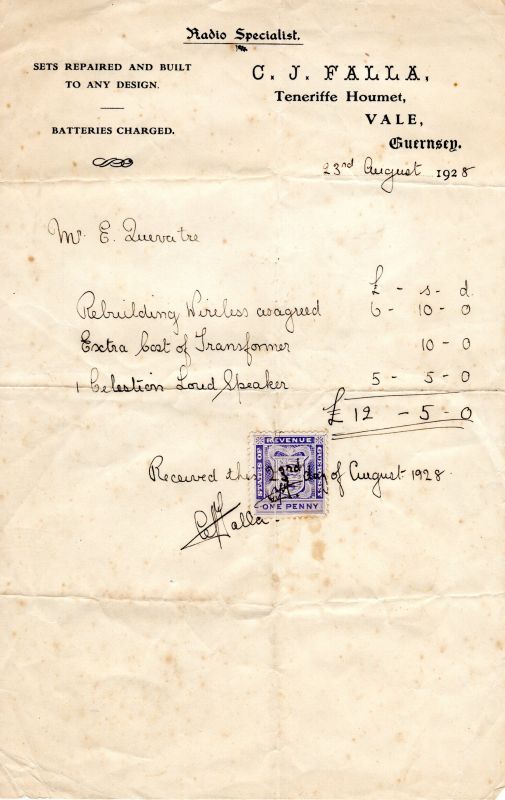 Radio Specialist.
SETS REPAIRED AND BUILT
TO ANY DESIGN.
BATTERIES CHARGED.
C. J. FALLA,
Teneriffe Houmet,
VALE,
Guernsey.
23rd August 1928
Mr E. Quevatre
£ - s - d.
Rebuilding Wireless as agreed 6 - 10 - 0
Extra Cost of Transformer 10 - 0
1 Celestion Loud Speaker 5 - 5 - 0
£ 12 - 5 - 0
Received this 23rd day of August 1928.
STATES OF REVENUE GUERNSEY
ONE PENNY
CJ Falla.